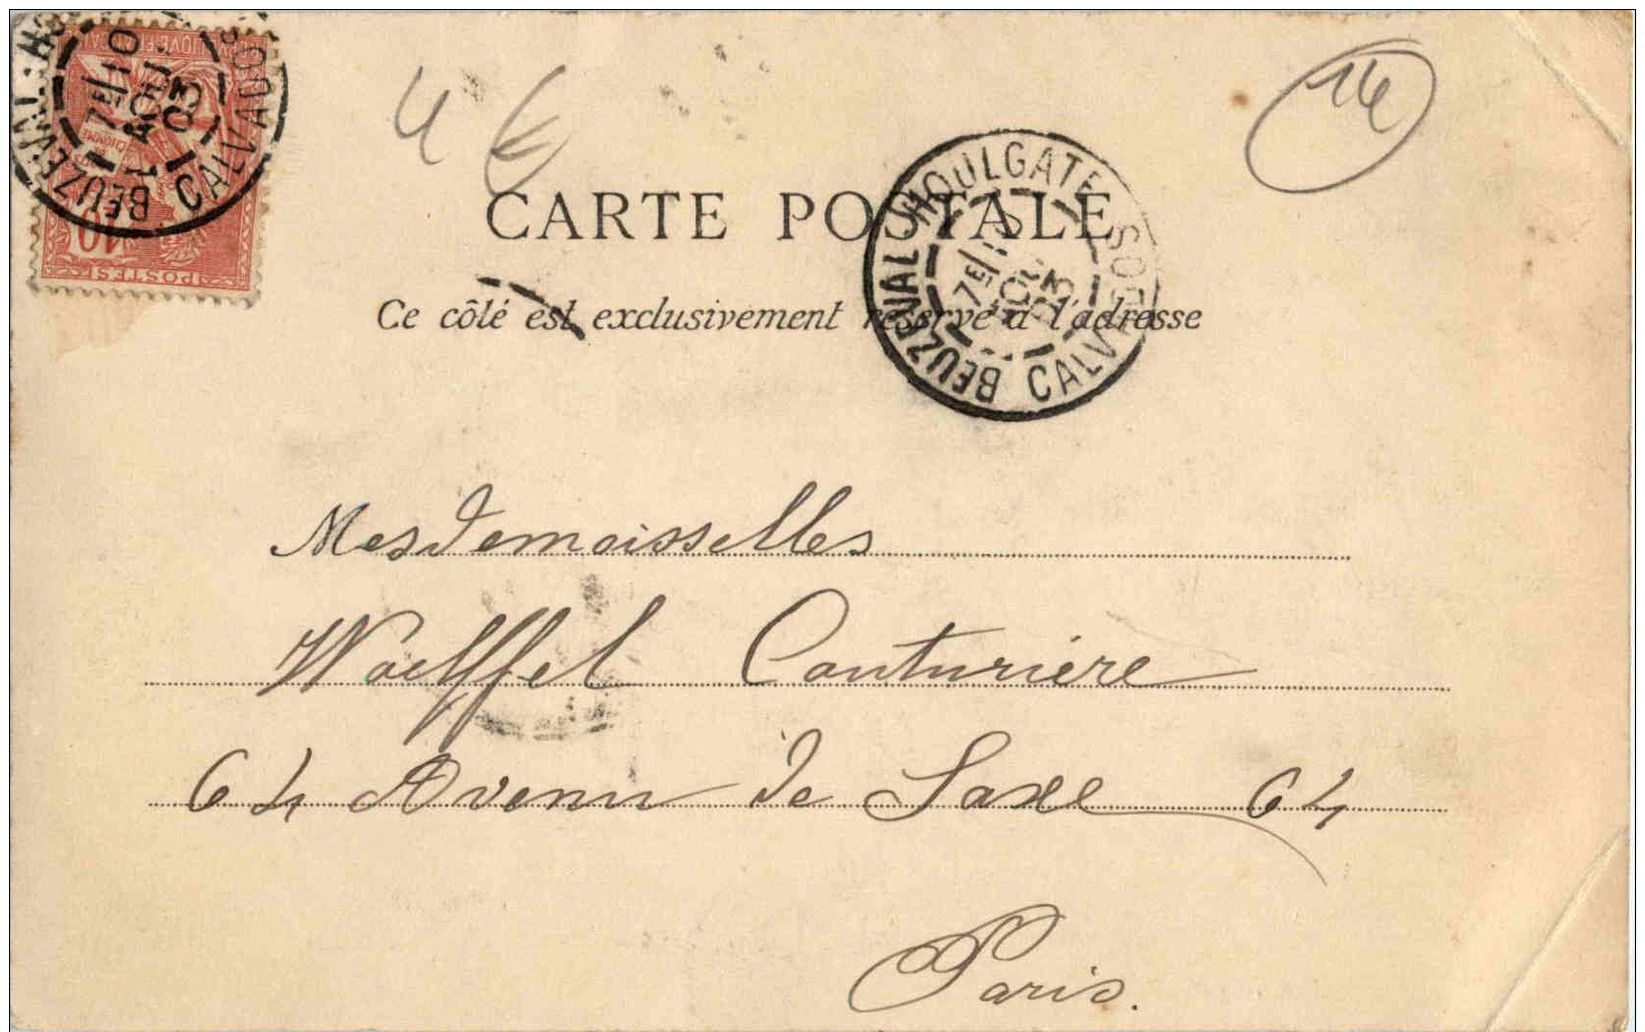 4 €
14
CARTE POSTALE
Ce côté est exclusivement réservé à l'adresse
BEUZEVAL HOULGATE CALVADOS
7E/10
1 AOU.
03
10
POSTES
BEUZEVAL HOULGATE CALVADOS
7E/10
AOU
03
Mesdemoisselles
Woelffel Couturière
64 Avenu de Saxe 64
Paris.